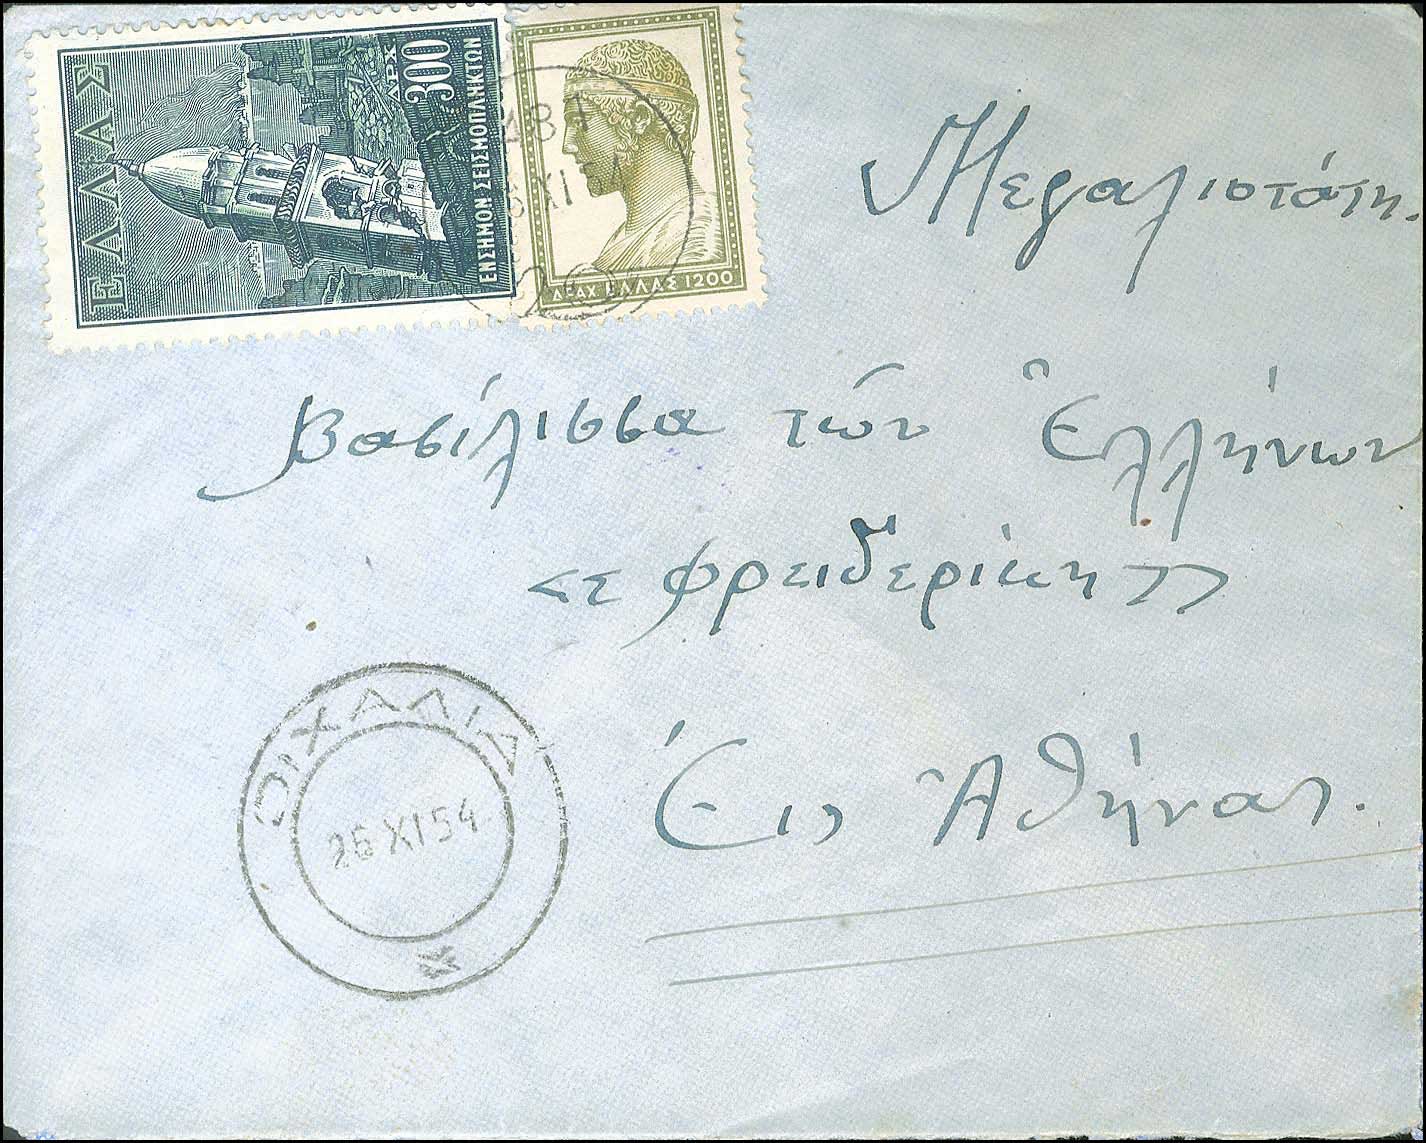 ΕΛΛΑΣ
ΔΡΧ 300
ΕΝΣΗΜΟΝ ΣΕΙΣΜΟΠΛΗΚΤΩΝ
ΔΡΑΧ ΕΛΛΑΣ 1200
Μεγαλιοτάτη.
Βασίλισσα τῶν Ἑλλήνων
<< Φρειδερίκη >>
Εἰς Ἀθήνας.
ΟΙΧΑΛΙΑ
26 XI 54